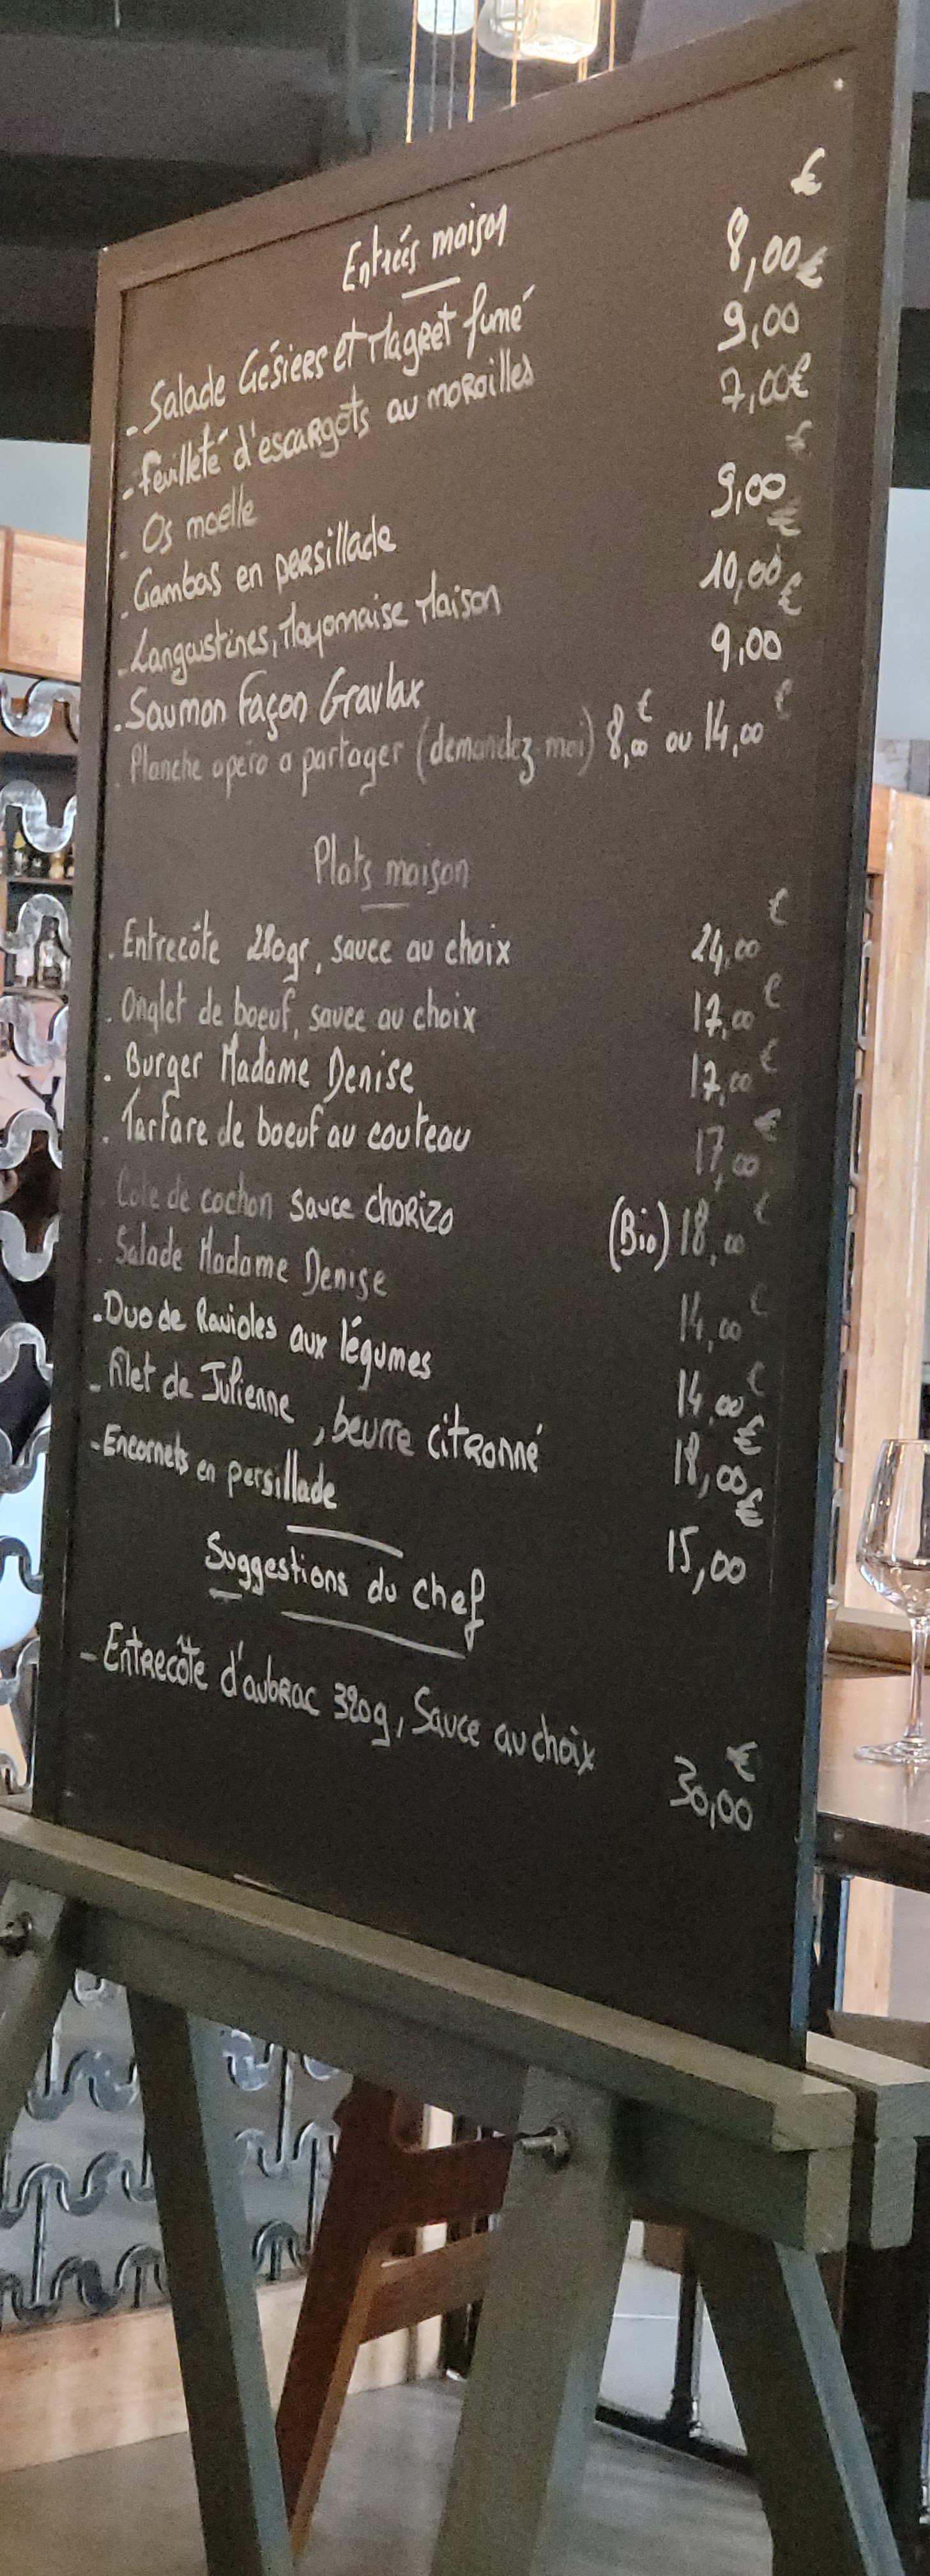 Entrées maison
€
- Salade Gésiers et Magret fumé 8,00
- feuilleté d'escargots au maroilles 9,00 €
- Os moelle 7,00€
- Gambas en persillade 9,00 €
- Langoustines, Mayonnaise Maison 10,00 €
- Saumon Façon Gravlax 9,00 €
. Planche apéro a partager (demandez-moi) 8,00 € ou 14,00 €
Plats maison
. Entrecôte 280gr, sauce au choix 24,00 €
. Onglet de boeuf, sauce au choix 17,00 €
. Burger Madame Denise 17,00 €
. Tartare de boeuf au couteau 17,00 €
. Cote de cochon sauce CHORIZO (Bio) 18,00 €
. Salade Madame Denise 14,00 €
- Duo de Ravioles aux légumes 14,00 €
- filet de Julienne, beurre citronné 18,00 €
- Encornets en persillade 15,00 €
Suggestions du chef
- Entrecôte d'aubrac 320g, Sauce au choix 30,00 €